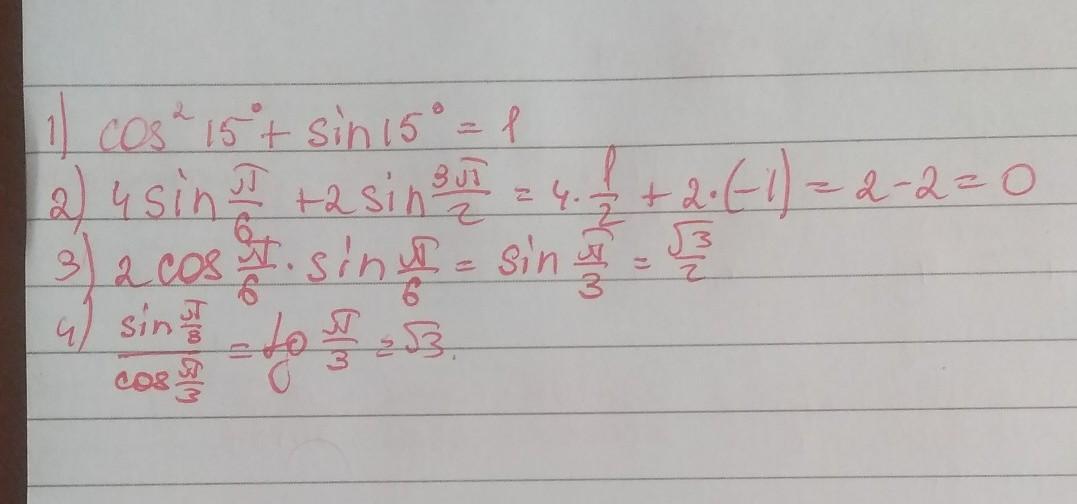 1) cos² 15° + sin 15° = 1
2) 4 sin π/6 + 2 sin 3π/2 = 4 · 1/2 + 2 · (-1) = 2 - 2 = 0
3) 2 cos π/6 · sin π/6 = sin π/3 = √3/2
4) sin π/8 / cos π/3 = tg π/3 = √3.